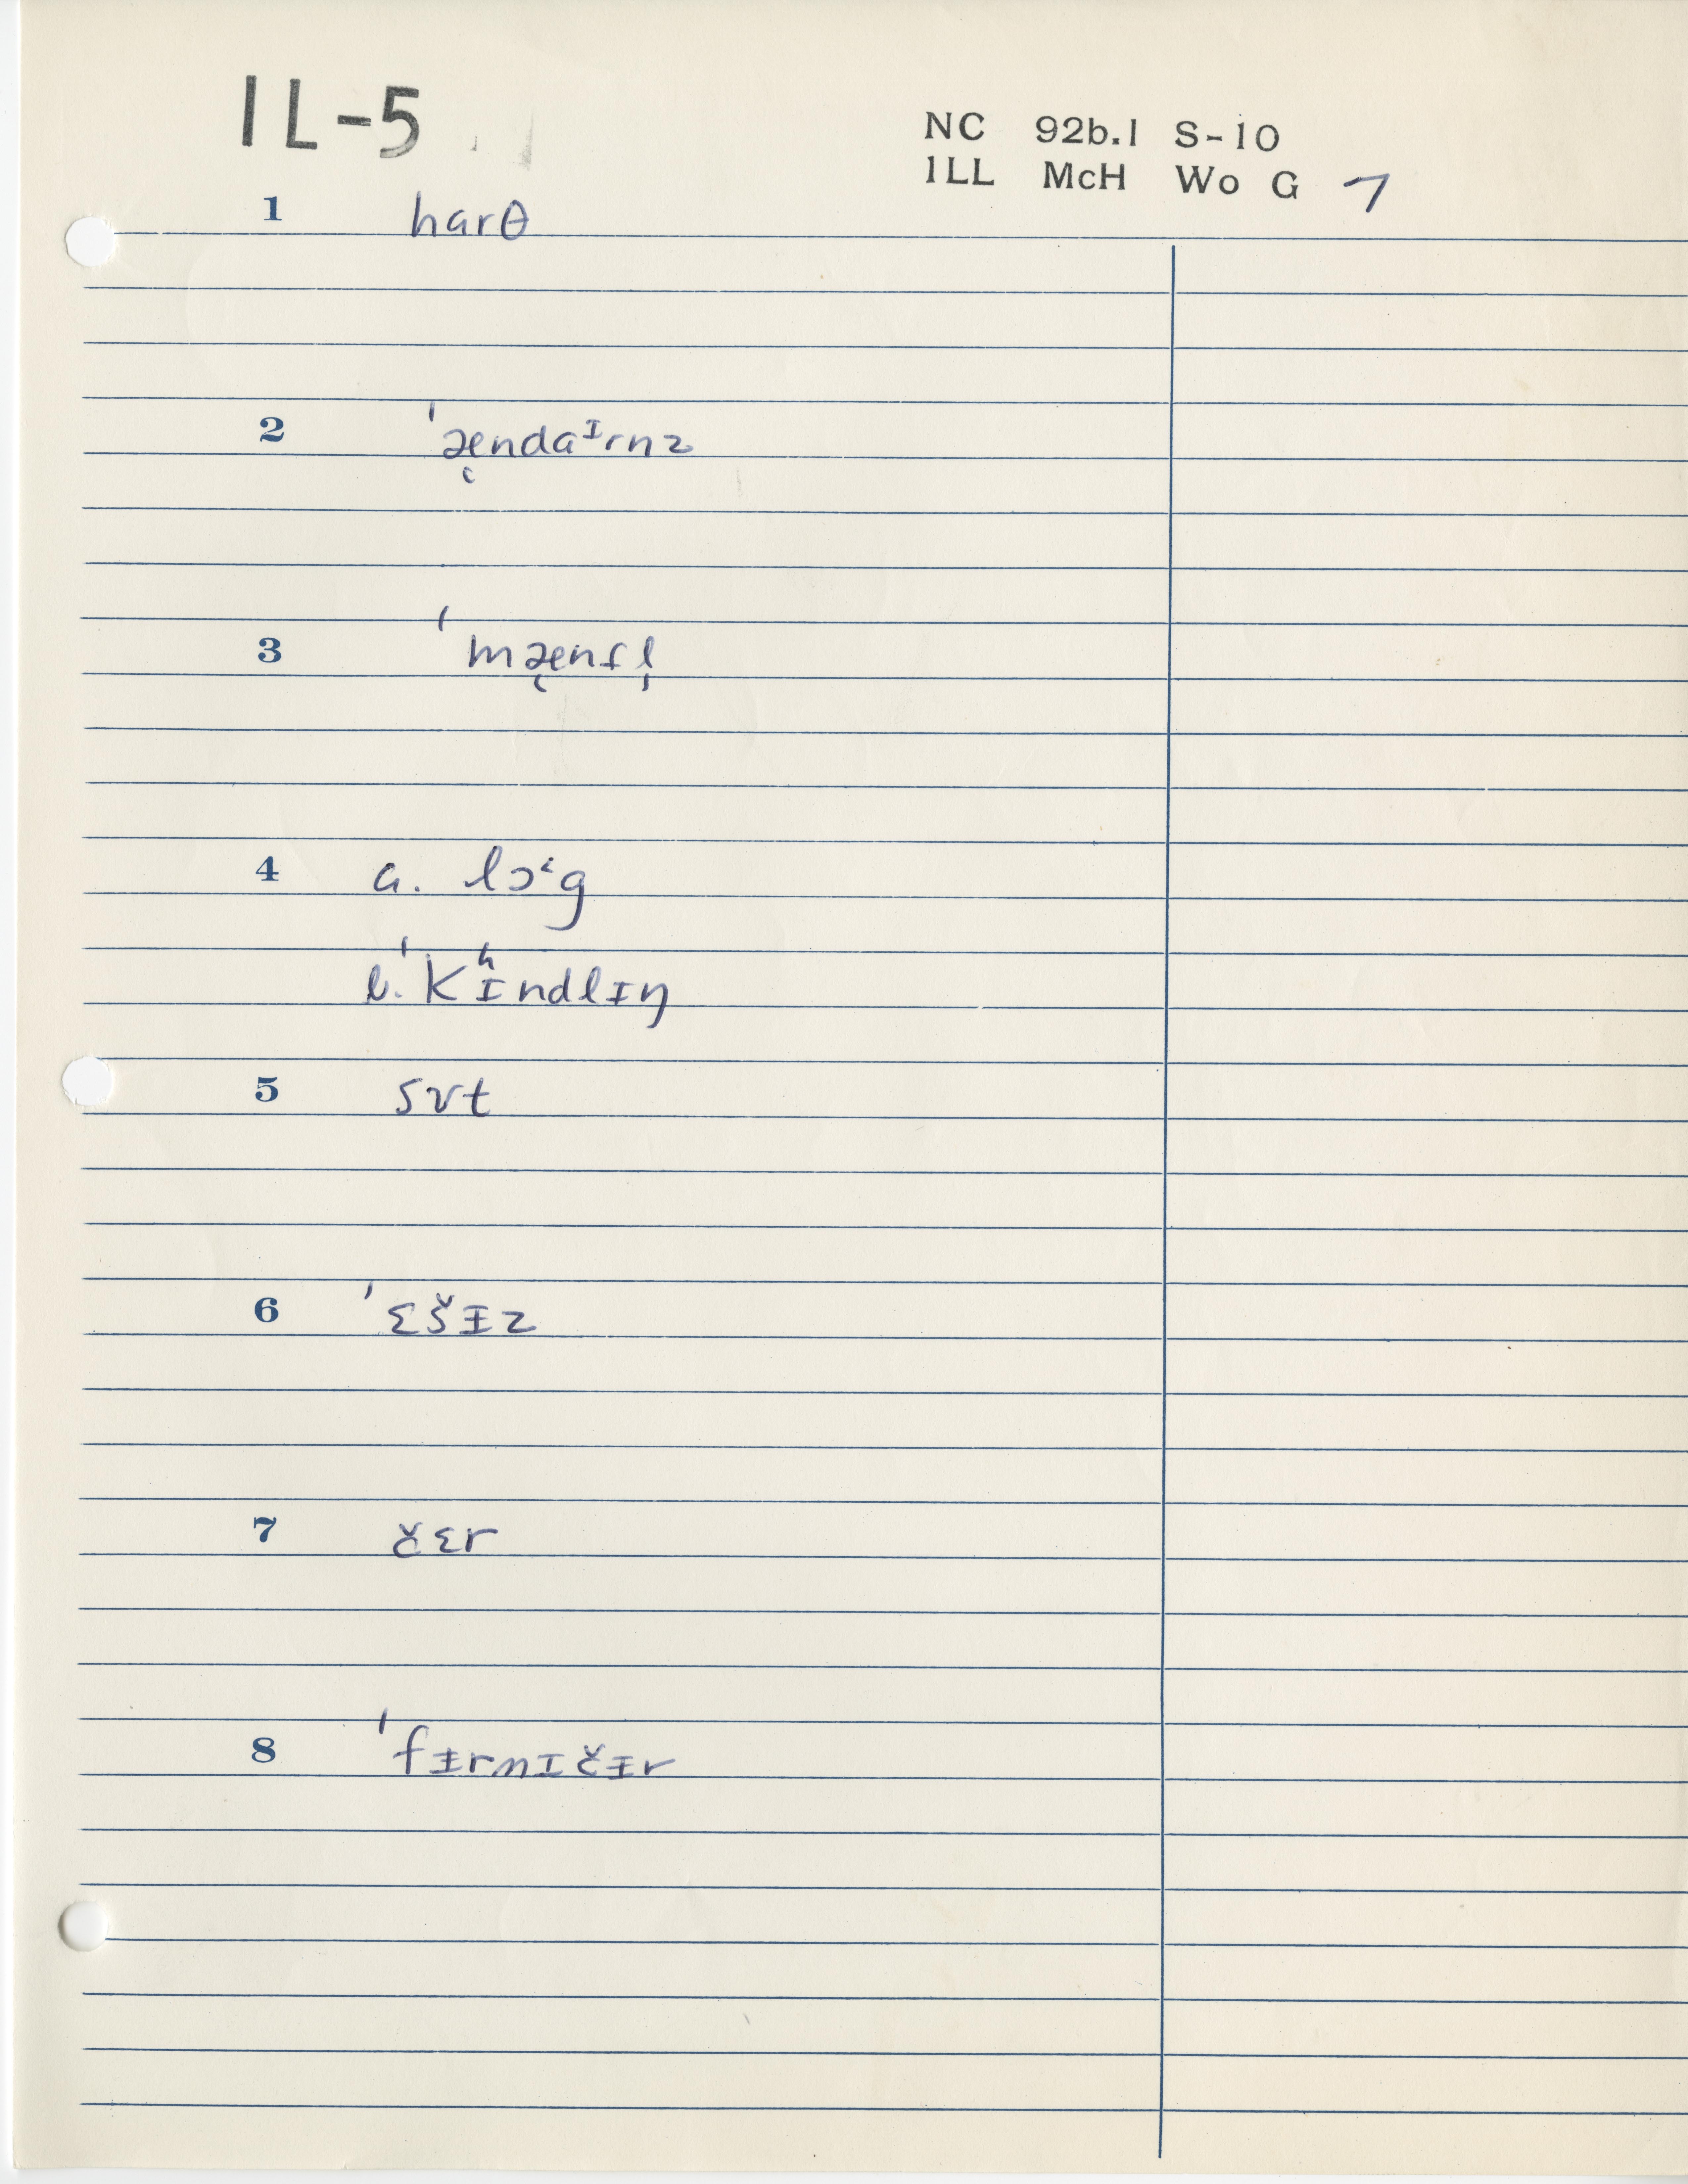 IL-5
NC 92b.1 S-10
ILL McH Wo G 7
1 harθ
2 ˈæ̨ndaᶦrnz
3 ˈmæ̨nsl̩
4 a. lɔⁱg
b. ˈkʰɪndlɪŋ
5 sʊt
6 ˈɛšɨz
7 čɛr
8 ˈfɨrnɪčɨr